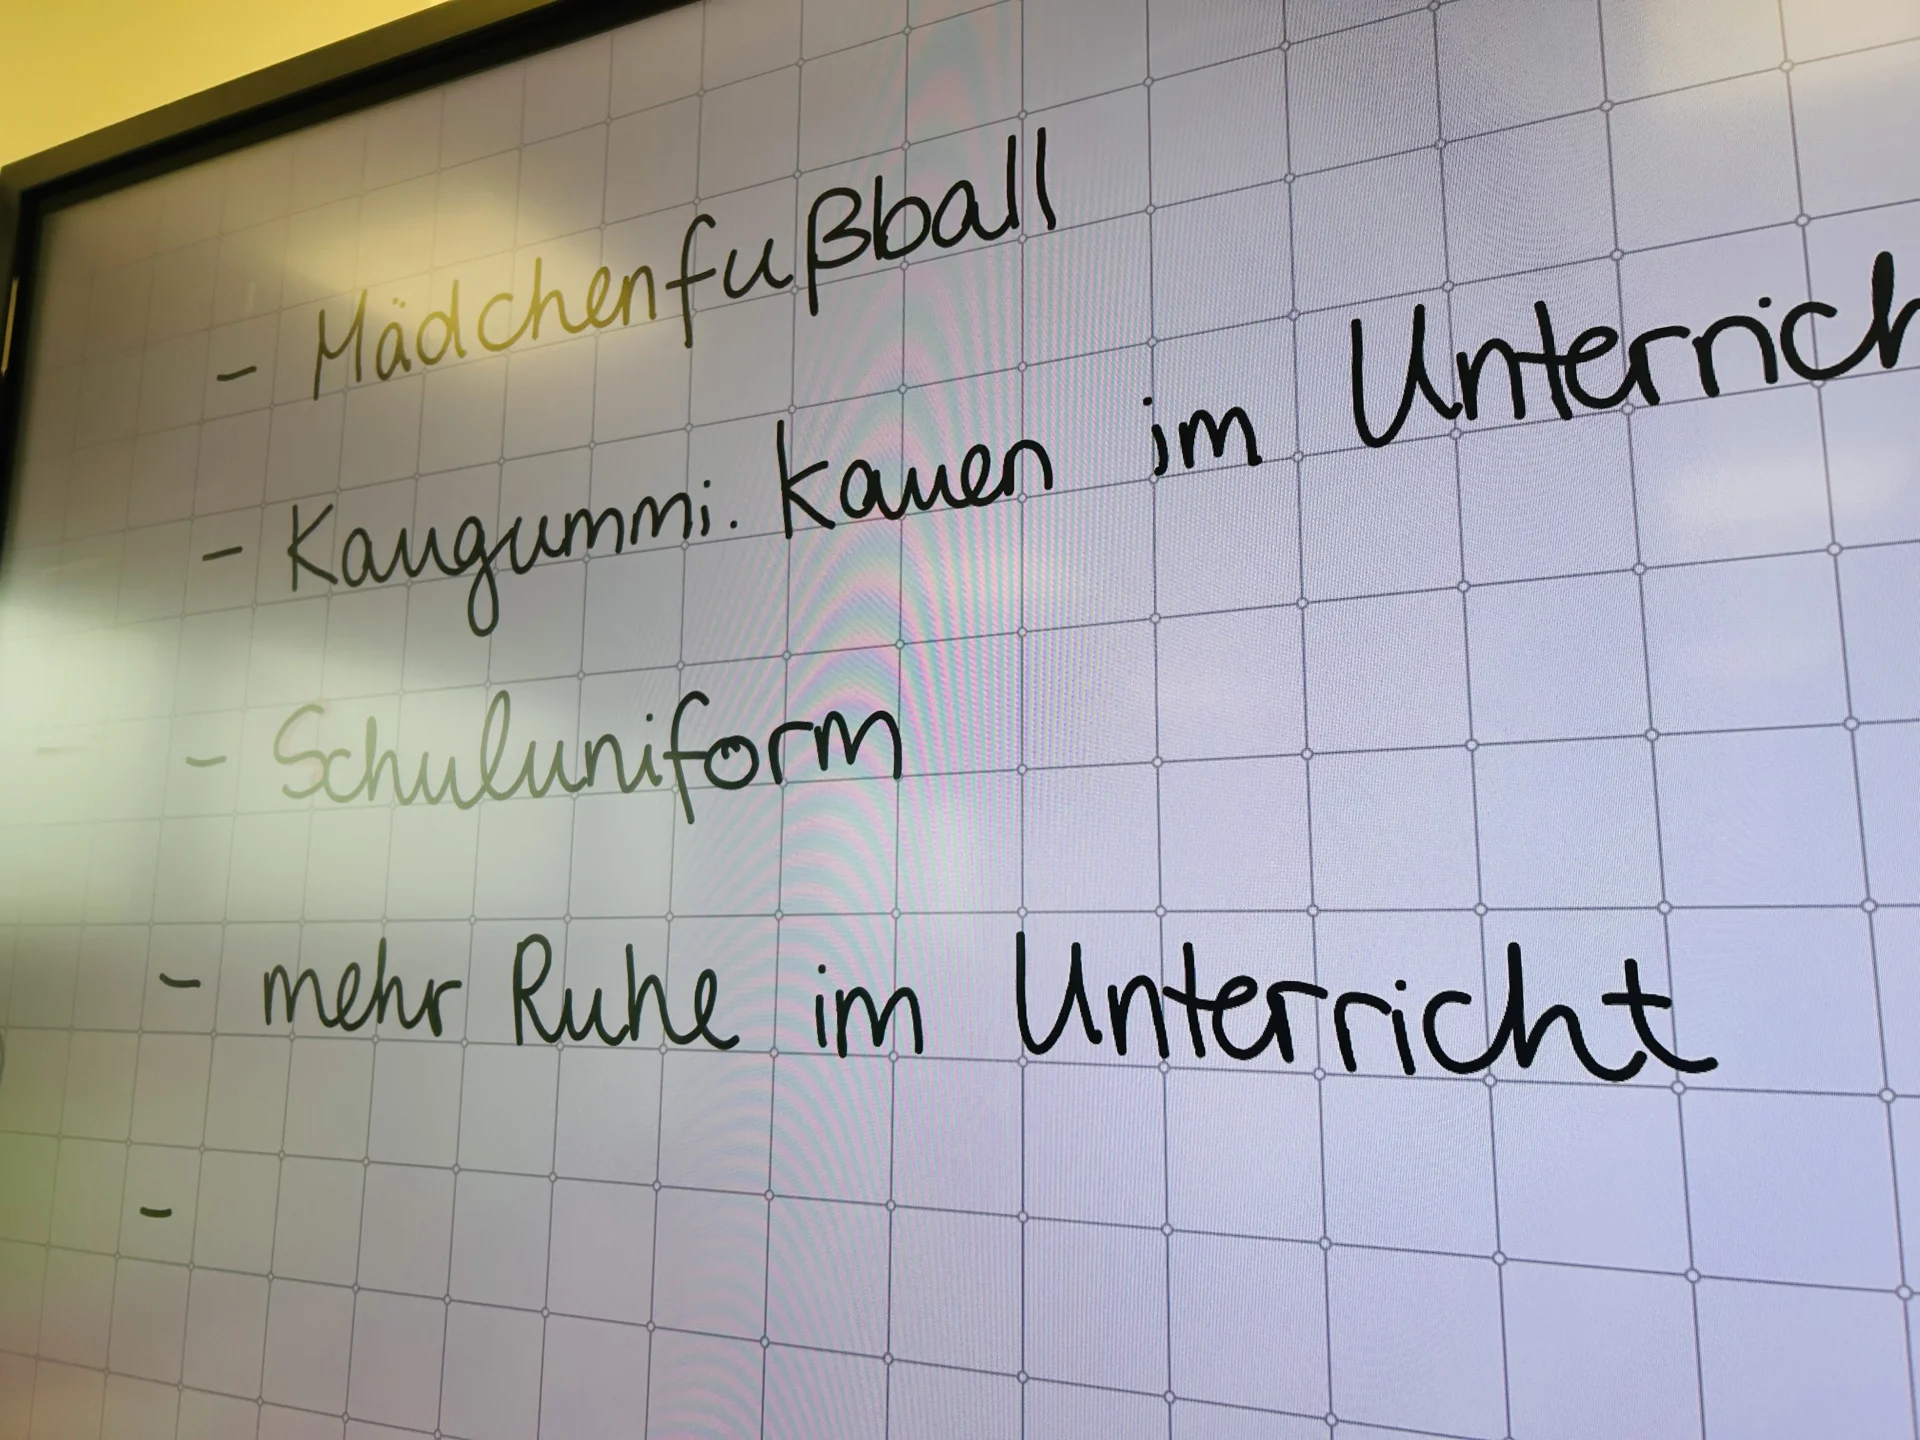 - Mädchenfußball
- Kaugummi. kauen im Unterrich
- Schuluniform
- mehr Ruhe im Unterricht
-